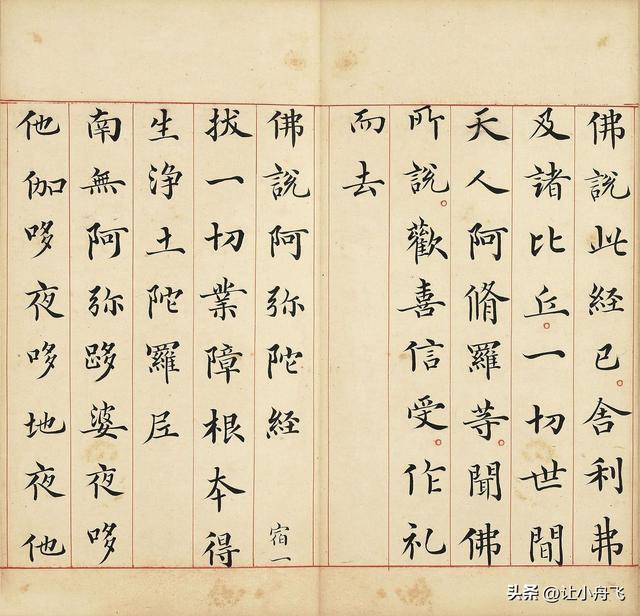 佛說此経已舎利弗
及諸比丘一切世間
天人阿脩羅等聞佛
所說歡喜信受作礼
而去
佛說阿弥陀経
宿一
拔一切業障根本得
生淨土陀羅尼
南無阿弥哆婆夜哆
他伽哆夜哆地夜他
头条 @让小舟飞